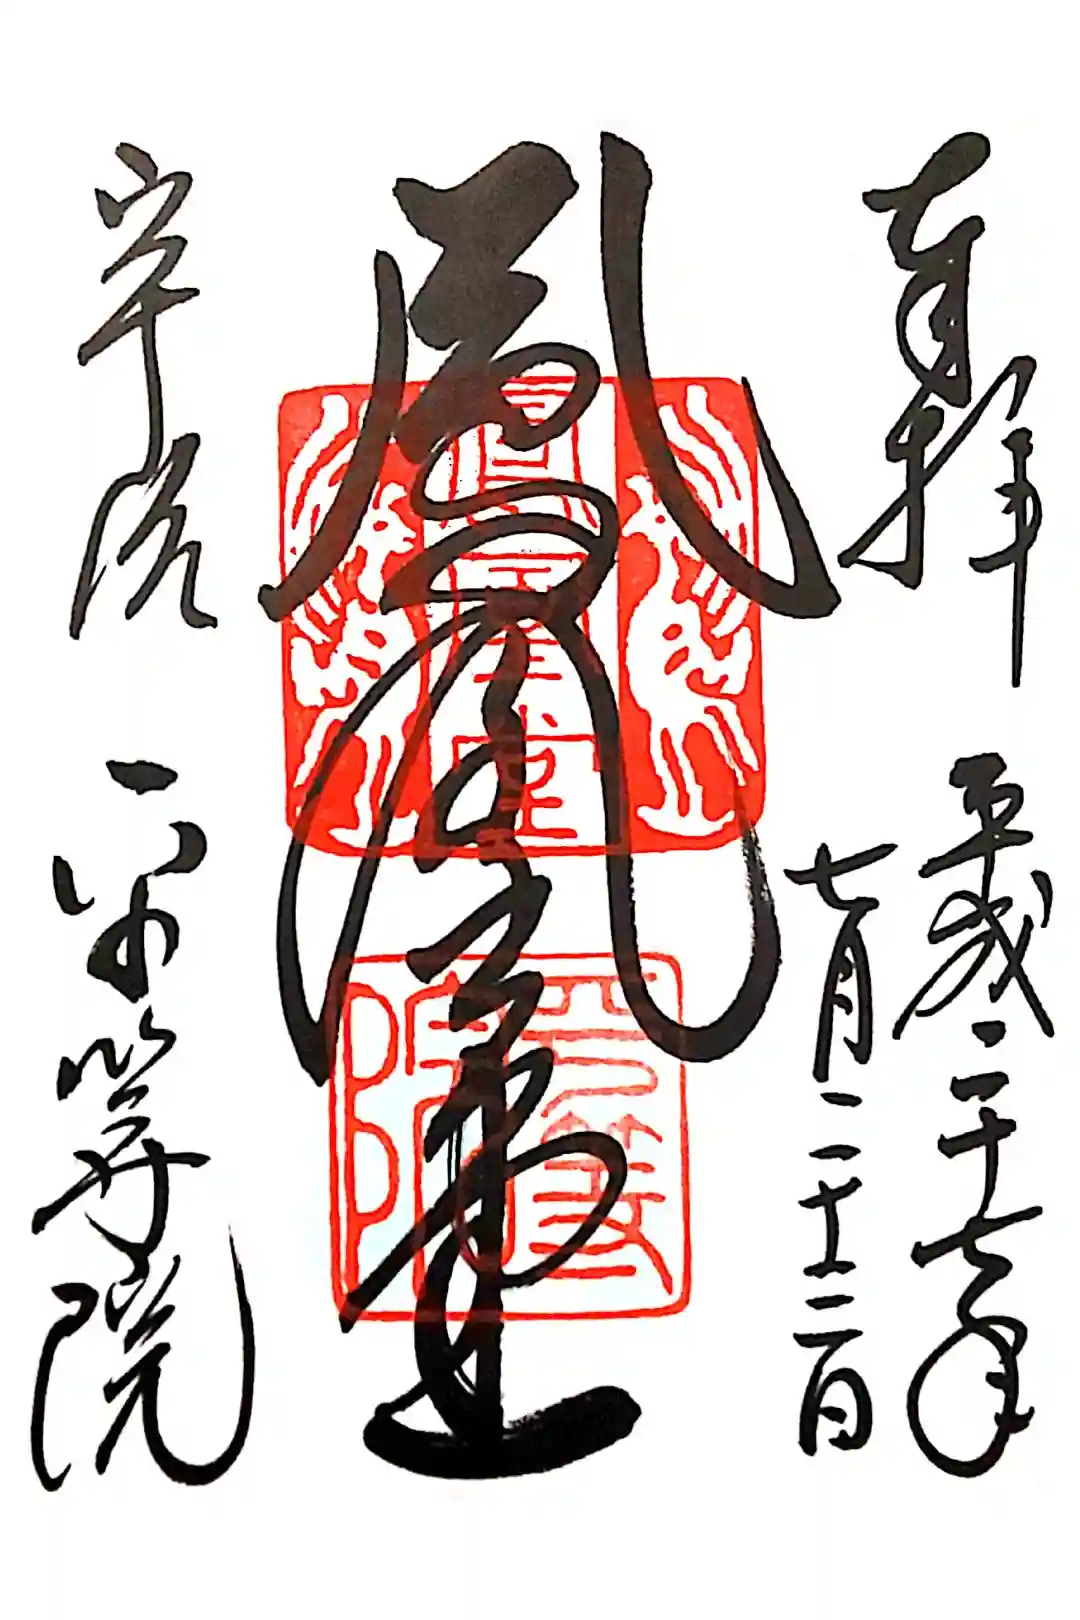 奉拝
平成二十七年
七月二十三日
鳳凰堂
宇治
平等院
鳳凰堂
平等院